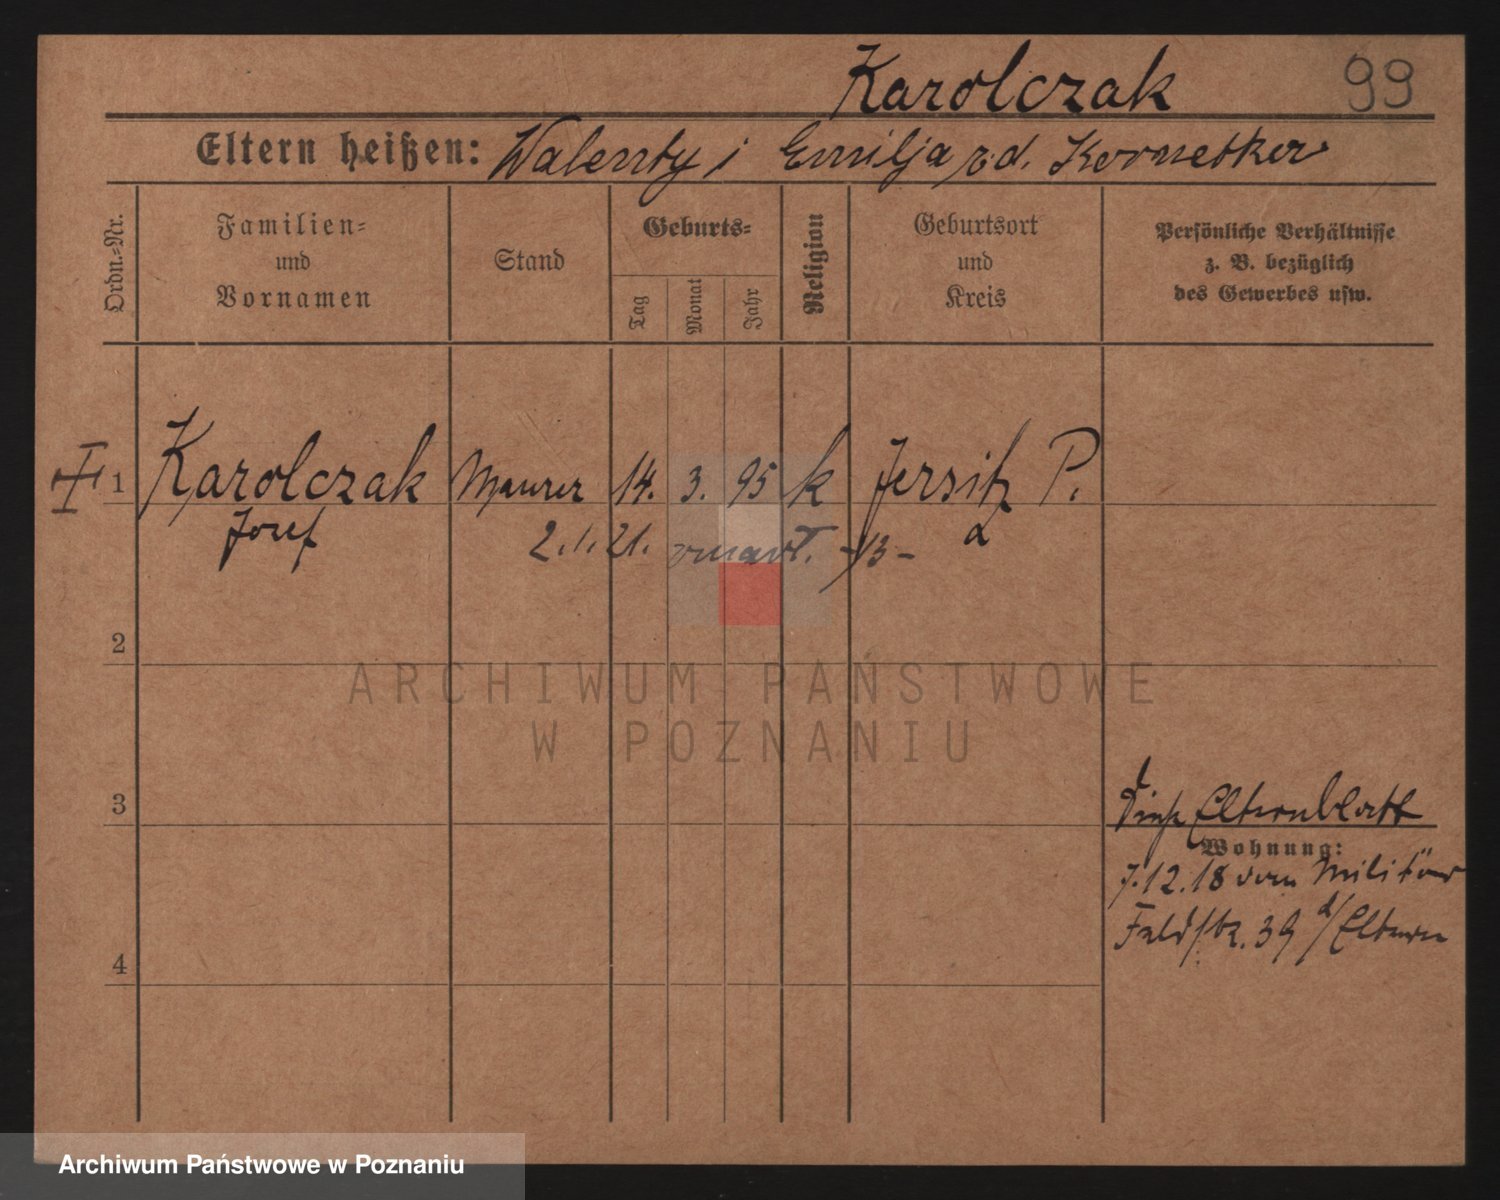 Karolczak 99
Eltern heißen: Walenty i Emilja z d.
Ordn.-Nr.
Familien-
und
Vornamen
Stand
Geburts-
Tag
Monat
Jahr
Religion
Geburtsort
und
Kreis
Persönliche Verhältnisse
z. B. bezüglich
des Gewerbes usw.
1 Karolczak Maurer 14. 3. 95 k Jersitz P.
Josef 2.1.21. zmarł. -13-
2
ARCHIWUM PAŃSTWOWE
W POZNANIU
3
Elternblatt
Wohnung:
7.12.18 vom Militär
Feldstr. 39 d/Eltern
4
Archiwum Państwowe w Poznaniu